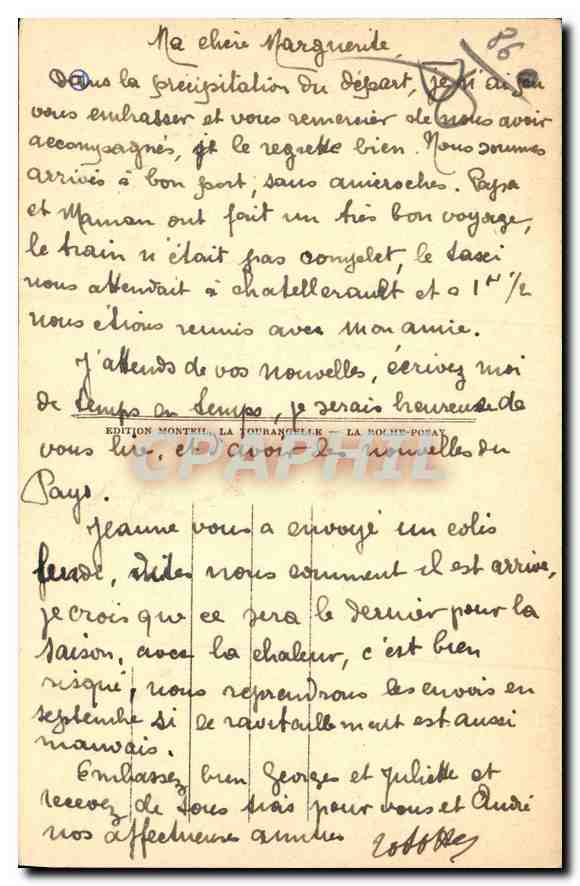 86
Ma chère Marguerite,
Dans la précipitation du départ, je n'ai pu
vous embrasser et vous remercier de nous avoir
accompagnés, je le regrette bien. Nous sommes
arrivés à bon port, sans anicroches. Papa
et Maman ont fait un très bon voyage,
le train n'était pas complet, le taxi
nous attendait à chatellerault et à 1 H 1/2
nous étions réunis avec mon amie.
J'attends de vos nouvelles, écrivez moi
de temps en temps, je serais heureuse de
EDITION MONTEIL, LA TOURANGELLE — LA ROCHE-POSAY
vous lire, et d'avoir les nouvelles du
Pays.
CPAPHIL
Jeanne vous a envoyé un colis
, dites nous comment il est arrivé,
je crois que ce sera le dernier pour la
saison, avec la chaleur, c'est bien
risqué, nous reprendrons les envois en
septembre si le ravitaillement est aussi
mauvais.
Embrassez bien Georges et Juliette et
recevez de tous trois pour vous et André
nos affectueuses amitiés